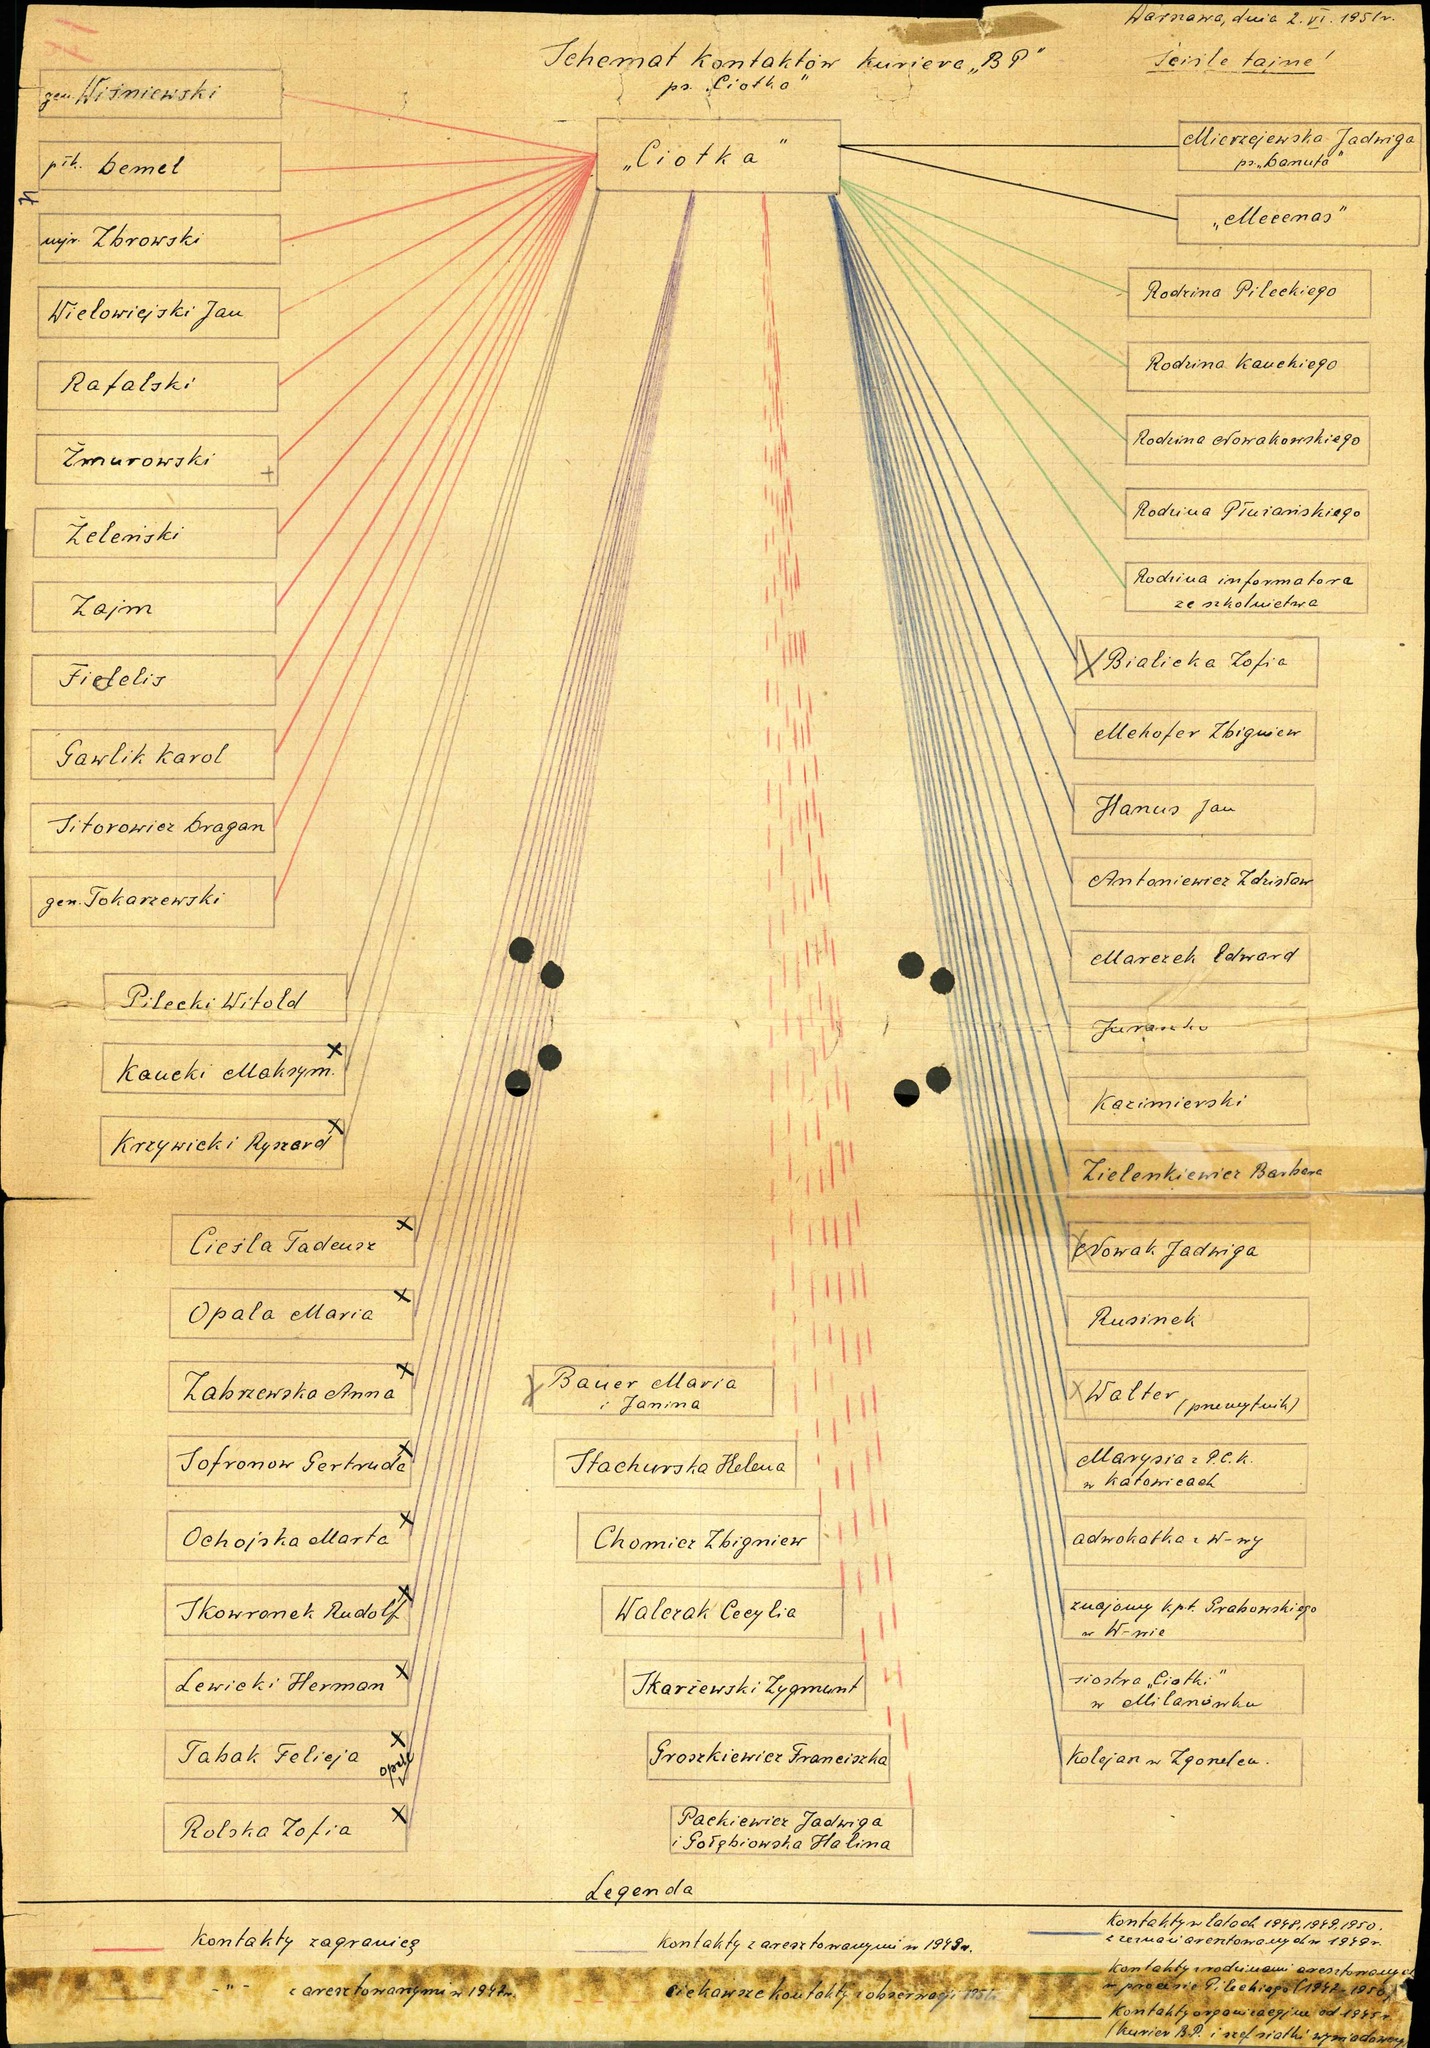 Warszawa, dnia 2. VI. 1951r.
Ściśle tajne!
Schemat kontaktów kuriera „BP"
ps. „Ciotka"
„Ciotka"
gen. Wiśniewski
płk. Demel
mjr. Zbrowski
Wielowiejski Jan
Rafalski
Żmurowski
Żeleński
Zajm
Fidelis
Gawlik Karol
Sitorowicz Dragan
gen. Tokarzewski
Pilecki Witold
Kaucki Maksym.
Krzywicki Ryszard
Cieśla Tadeusz
Opala Maria
Zabrzewska Anna
Sofronow Gertruda
Ochojska Marta
Skowronek Rudolf
Lewicki Herman
Tabak Felicja
Rolska Zofia
Bauer Maria
i Janina
Stachurska Helena
Chomicz Zbigniew
Walczak Cecylia
Skarżewski Zygmunt
Groszkiewicz Franciszka
Packiewicz Jadwiga
i Gołębiowska Halina
Mierzejewska Jadwiga
ps. „Danuta"
„Mecenas"
Rodzina Pileckiego
Rodzina Kauckiego
Rodzina Nowakowskiego
Rodzina Płużańskiego
Rodzina informatora
ze szkolnictwa
Bialicka Zofia
Mehofer Zbigniew
Hanus Jan
Antoniewicz Zdzisław
Marczek Edward
Juraszko
Kazimierski
Zielenkiewicz Barbara
Nowak Jadwiga
Rusinek
Walter (przemytnik)
Marysia z P.C.K.
w Katowicach
adwokatka z W-wy
znajomy kpt. Grabowskiego
w W-wie
siostra „Ciotki"
w Milanówku
Kolejarz w Zgorzelcu.
Legenda
Kontakty zagranicą
-"- z aresztowanymi w 1947r.
Kontakty z aresztowanymi w 1949r.
Ciekawsze kontakty z obserwacji 1951r.
Kontakty w latach 1948, 1949, 1950.
z aresztowanych w 1949r.
Kontakty z rodzinami aresztowanych
w procesie Pileckiego (1947-1950)
Kontakty organizacyjne od 1945r.
(Kurier B.P. i szef siatki wywiadowczej